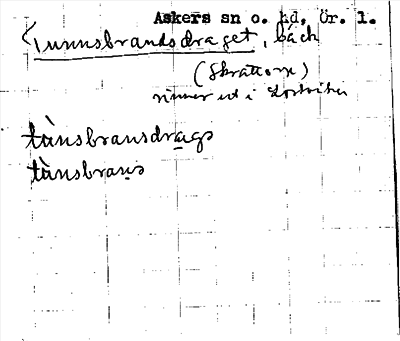 Askers sn o. hd, Ör. 1.
Tunnsbrandsdraget, bäck
(Skrattorp)
rinner ut i
tànsbransdrags
tànsbrans